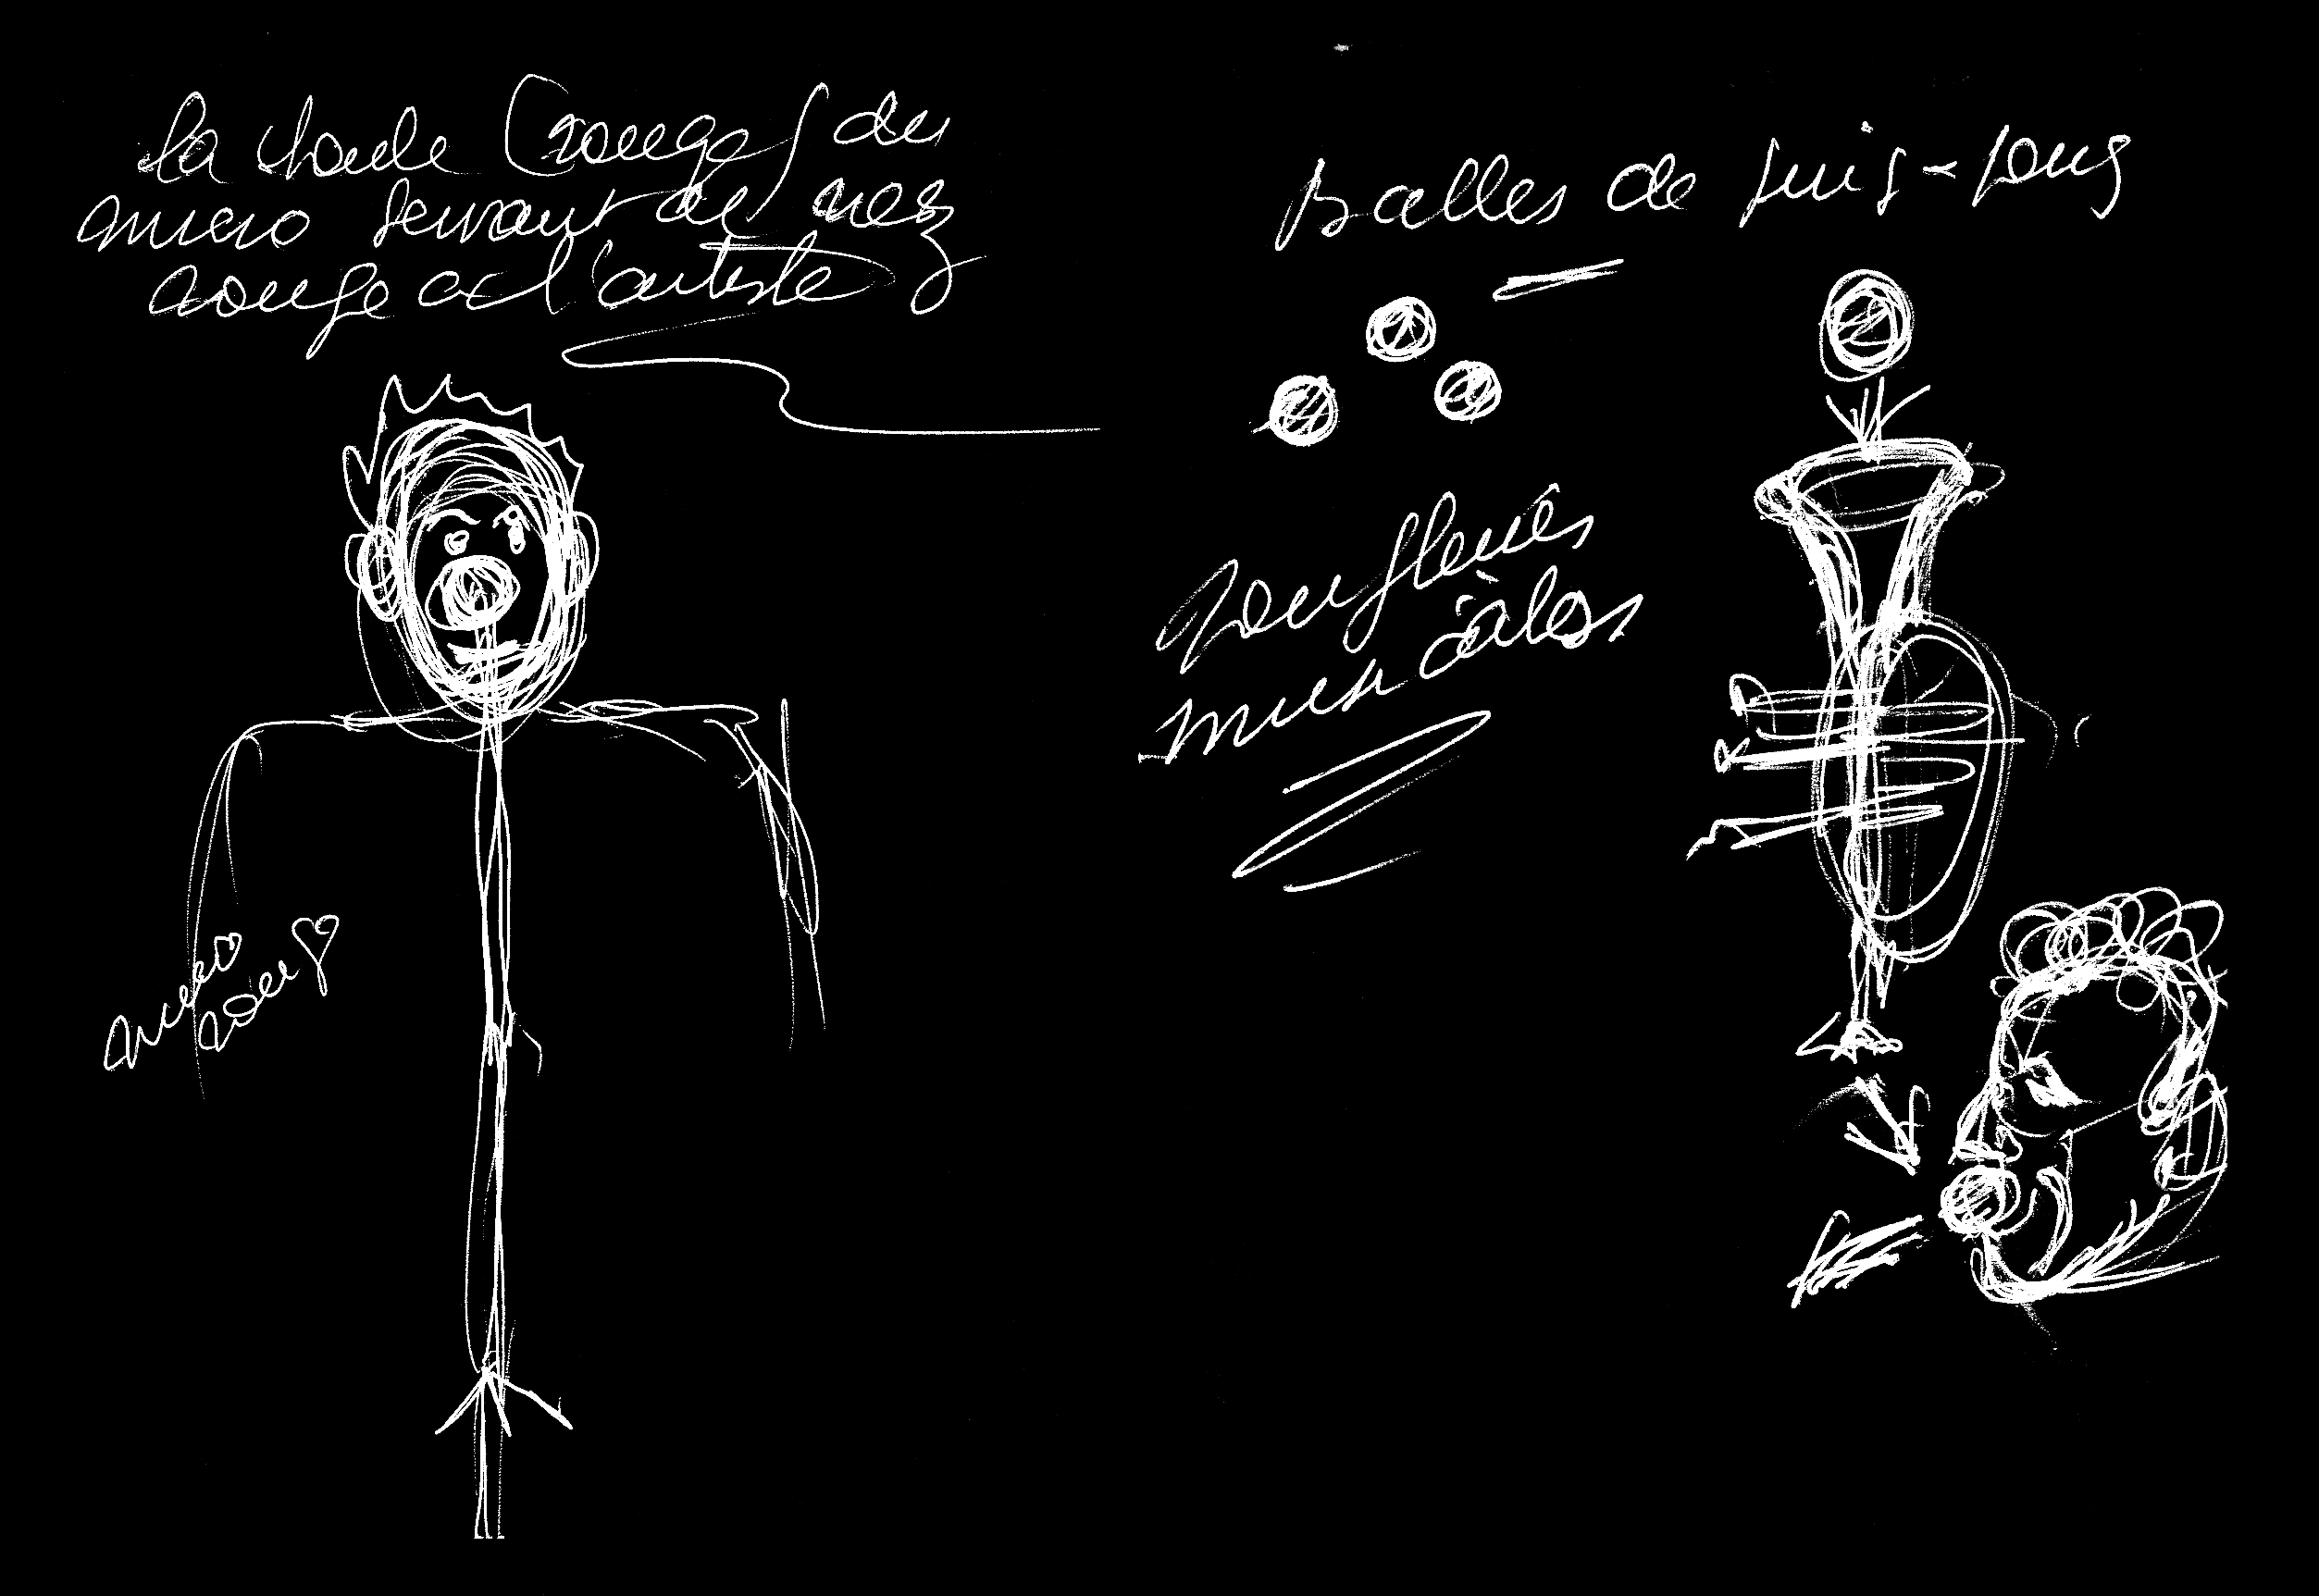 la boule (rouge) du
micro servant de nez
rouge à l'artiste
Balles de ping-pong
gonflées
musicales
micro